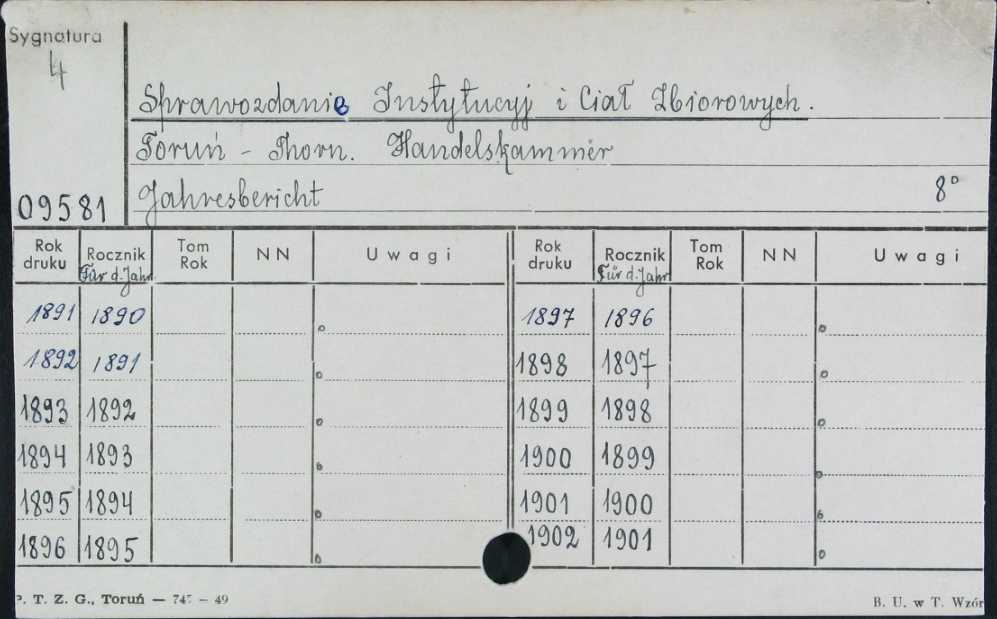 Sygnatura
4
Sprawozdanie Instytucyj i Ciał Zbiorowych.
Toruń - Thorn. Handelskammer
Jahresbericht 8°
09581
Rok druku Rocznik Für d. Jahr Tom Rok NN Uwagi Rok druku Rocznik Für d. Jahr Tom Rok NN Uwagi
1891 1890 1897 1896
1892 1891 1898 1897
1893 1892 1899 1898
1894 1893 1900 1899
1895 1894 1901 1900
1896 1895 1902 1901
P. T. Z. G., Toruń — 49 B. U. w T. Wzór